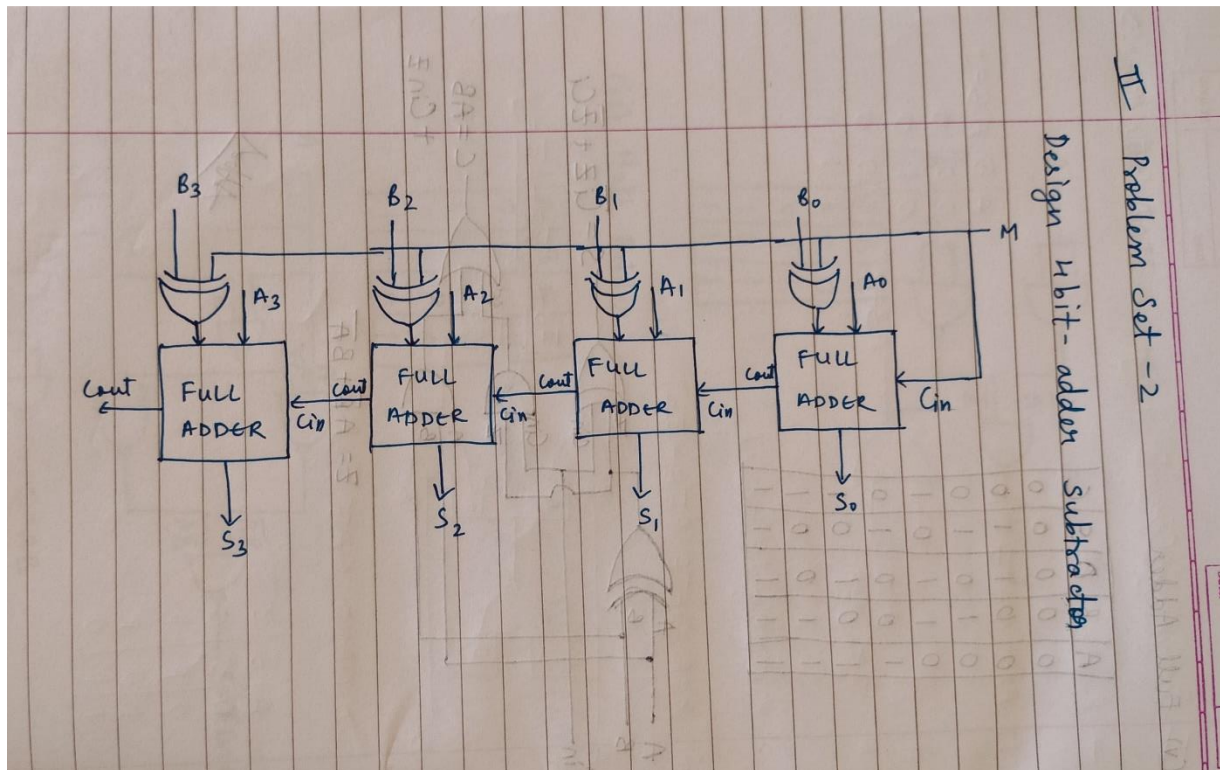 II Problem Set-2
Design 4bit-adder subtractor
B3 B2 B1 B0 M
A3 A2 A1 A0
Cout FULL ADDER Cin Cout FULL ADDER Cin Cout FULL ADDER Cin Cout FULL ADDER Cin
S3 S2 S1 S0